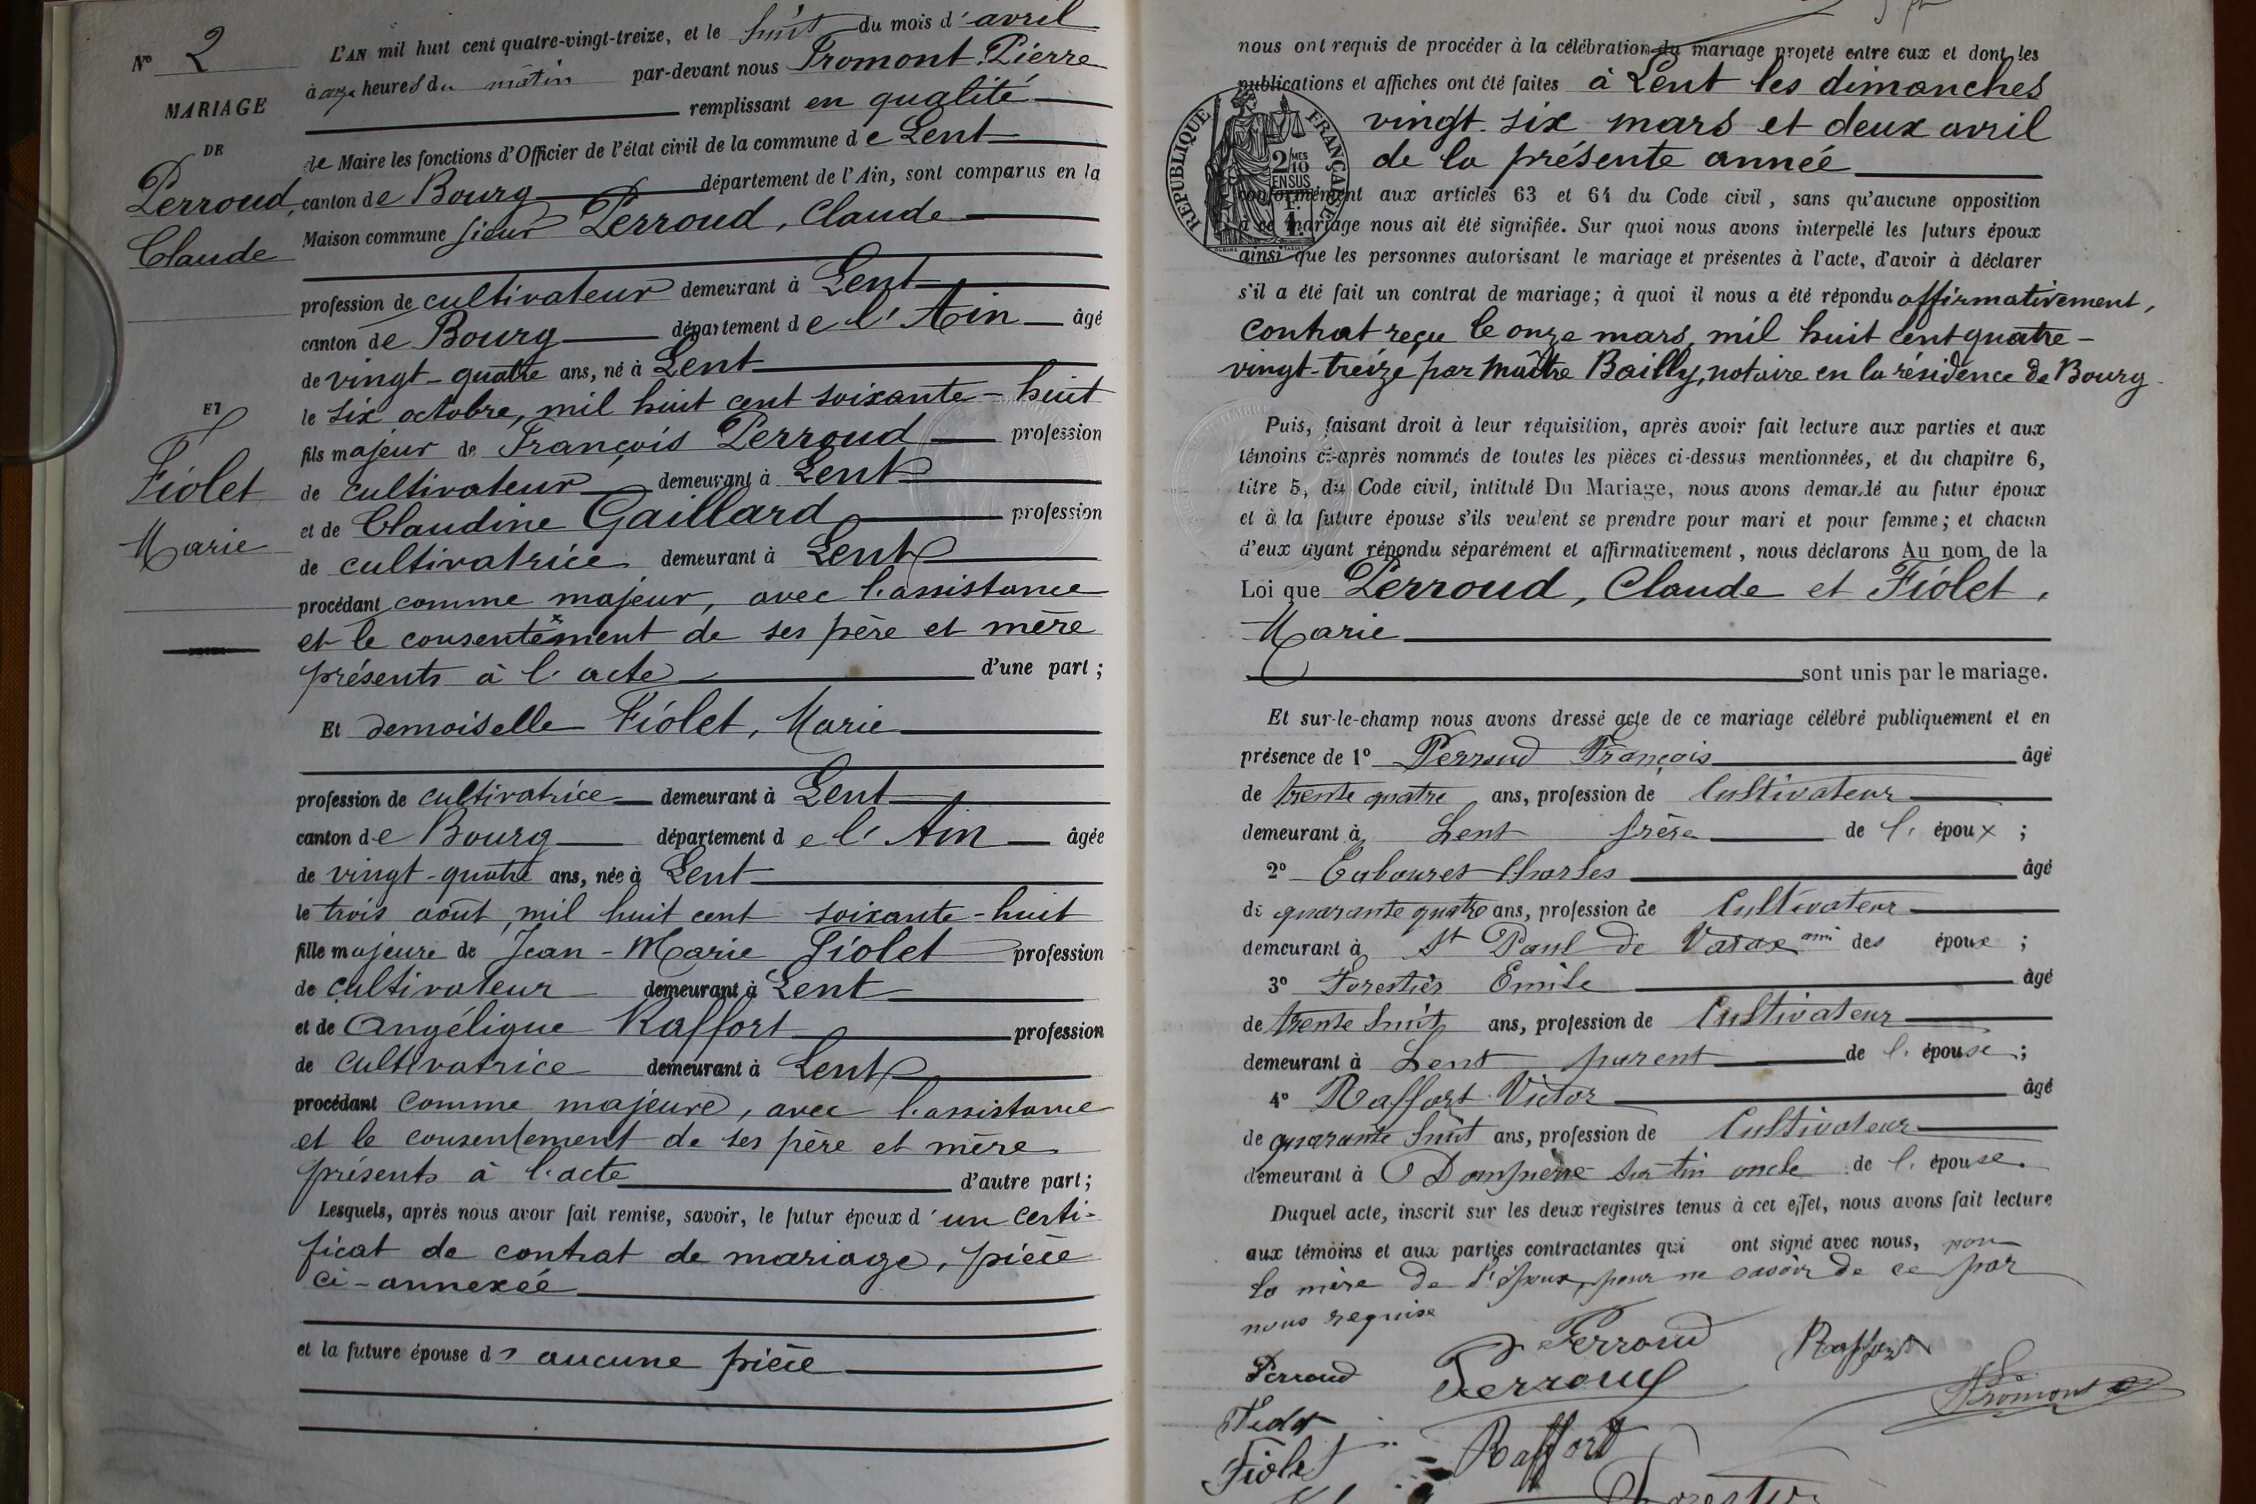 L'AN mil huit cent quatre-vingt-treize, et le huit du mois d'avril
N° 2
à onze heures du matin par-devant nous Promont Pierre
remplissant en qualité
MARIAGE
de Maire les fonctions d'Officier de l'état civil de la commune de Lent
DE
Perroud,
Claude
canton de Bourg département de l'Ain, sont comparus en la
Maison commune sieur Perroud, Claude
profession de cultivateur demeurant à Lent
canton de Bourg département de l'Ain âgé
de vingt-quatre ans, né à Lent
le six octobre, mil huit cent soixante-huit
ET
Fiolet
Marie
fils majeur de François Perroud profession
de cultivateur demeurant à Lent
et de Claudine Gaillard profession
de cultivatrice demeurant à Lent
procédant comme majeur, avec l'assistance
et le consentement de ses père et mère
présents à l'acte d'une part ;
Et demoiselle Fiolet, Marie
profession de cultivatrice demeurant à Lent
canton de Bourg département de l'Ain âgée
de vingt-quatre ans, née à Lent
le trois août, mil huit cent soixante-huit
fille majeure de Jean-Marie Fiolet profession
de cultivateur demeurant à Lent
et de Angélique Raffort profession
de cultivatrice demeurant à Lent
procédant comme majeure, avec l'assistance
et le consentement de ses père et mère
présents à l'acte d'autre part ;
Lesquels, après nous avoir fait remise, savoir, le futur époux d'un certi-
ficat de contrat de mariage, pièce
ci-annexée
et la future épouse d' aucune pièce
nous ont requis de procéder à la célébration du mariage projeté entre eux et dont les
publications et affiches ont été faites à Lent les dimanches
vingt-six mars et deux avril
de la présente année
RÉPUBLIQUE FRANÇAISE
2/MES
10
EN SUS
conformément aux articles 63 et 64 du Code civil, sans qu'aucune opposition
à ce mariage nous ait été signifiée. Sur quoi nous avons interpellé les futurs époux
ainsi que les personnes autorisant le mariage et présentes à l'acte, d'avoir à déclarer
s'il a été fait un contrat de mariage; à quoi il nous a été répondu affirmativement,
contrat reçu le onze mars, mil huit cent quatre-
vingt-treize par Maître Bailly, notaire en la résidence de Bourg
Puis, faisant droit à leur réquisition, après avoir fait lecture aux parties et aux
témoins ci-après nommés de toutes les pièces ci-dessus mentionnées, et du chapitre 6,
titre 5, du Code civil, intitulé Du Mariage, nous avons demandé au futur époux
et à la future épouse s'ils veulent se prendre pour mari et pour femme; et chacun
d'eux ayant répondu séparément et affirmativement, nous déclarons Au nom de la
Loi que Perroud, Claude et Fiolet,
Marie
sont unis par le mariage.
Et sur-le-champ nous avons dressé acte de ce mariage célébré publiquement et en
présence de 1° Perroud François âgé
de trente quatre ans, profession de Cultivateur
demeurant à Lent frère de l'époux ;
2° Charles âgé
de quarante quatre ans, profession de Cultivateur
demeurant à St Paul de Varax ami des époux ;
3° Forestier Emile âgé
de trente huit ans, profession de Cultivateur
demeurant à Lent parent de l'épouse ;
4° Raffort Victor âgé
de quarante huit ans, profession de Cultivateur
demeurant à Dompierre sur oncle de l'épouse.
Duquel acte, inscrit sur les deux registres tenus à cet effet, nous avons fait lecture
aux témoins et aux parties contractantes qui ont signé avec nous, non
la mère de l'époux, pour ne savoir de ce par
nous requise
Perroud Raffort
Perroud Perroud
Promont
Fiolet Raffort
Forestier